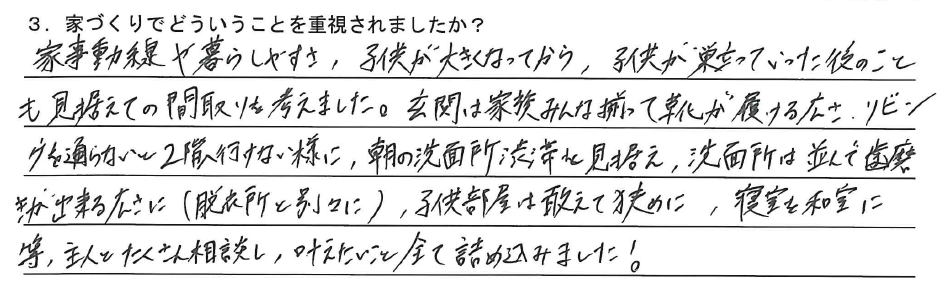 3．家づくりでどういうことを重視されましたか？
家事動線や暮らしやすさ，子供が大きくなってから，子供が巣立っていった後のこと
も見据えての間取りを考えました。玄関は家族みんな揃って靴が履ける広さ．リビン
グを通らないと2階へ行けない様に，朝の洗面所渋滞も見据え，洗面所は並んで歯磨
きが出来る広さに（脱衣所と別々に），子供部屋は敢えて狭めに，寝室を和室に
等，主人とたくさん相談し，叶えたいこと全て詰め込みました！